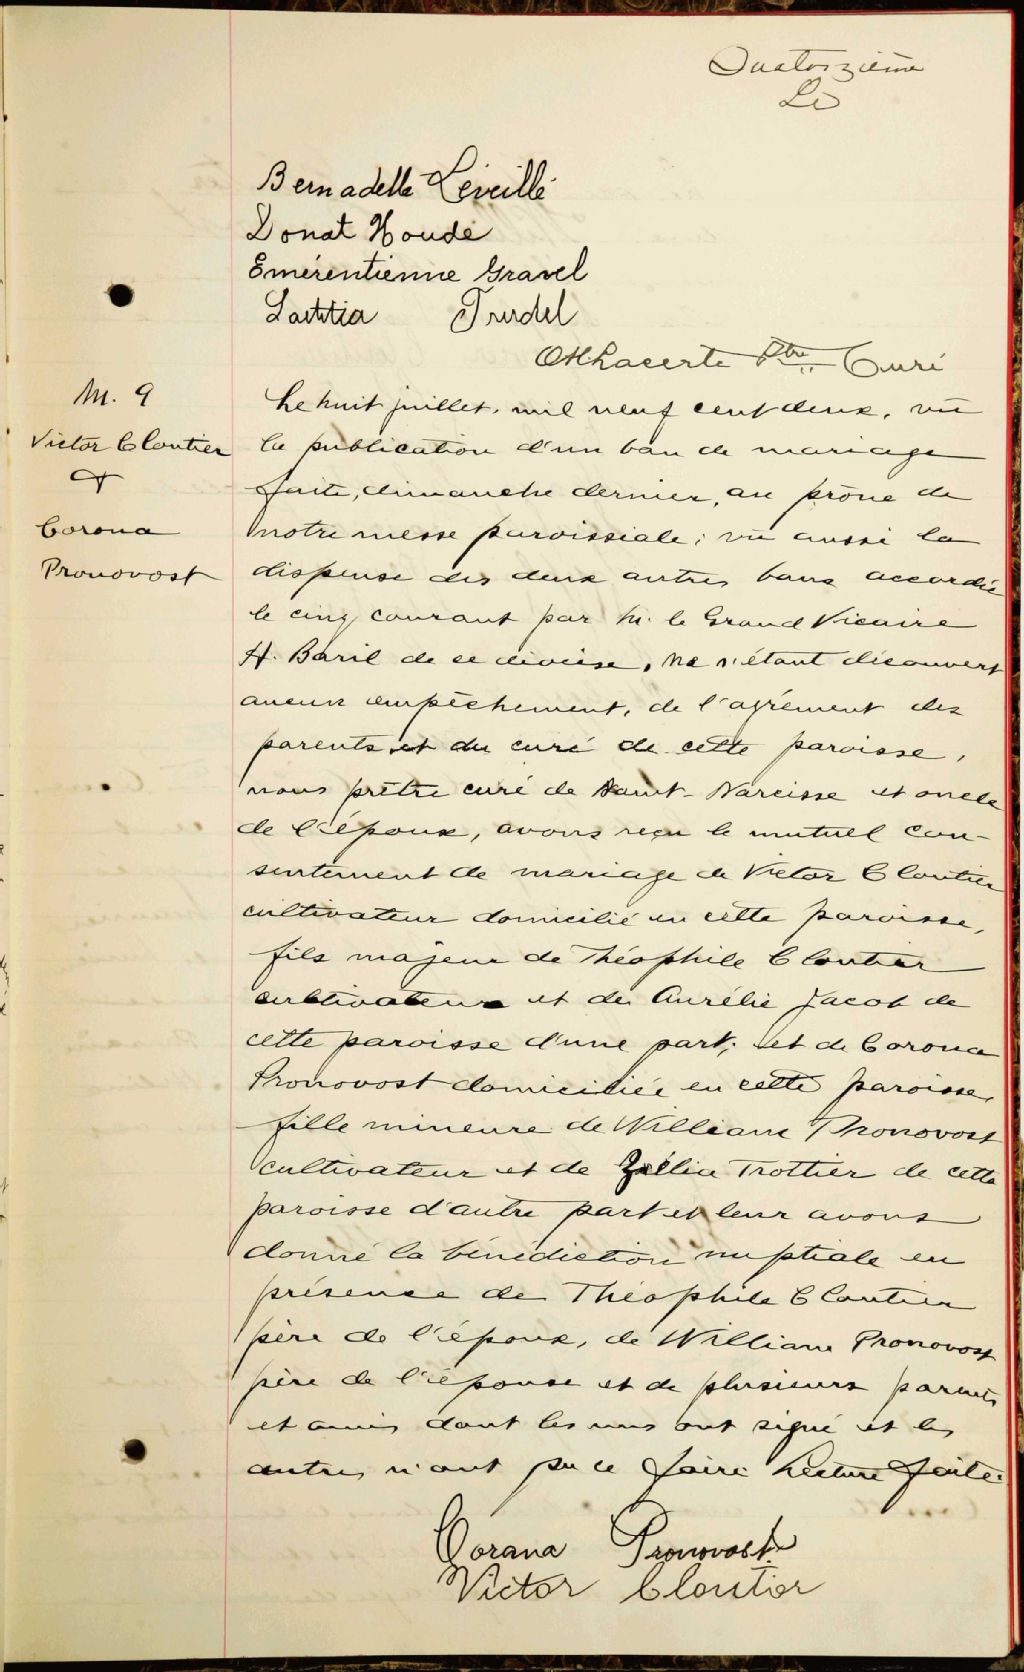 Quatorzième
Le
Bernadette Léveillé
Donat Houde
Emérentienne Gravel
Laetitia Trudel
Ptre Curé
M. 9
Victor Cloutier
&
Corona
Pronovost
Le huit juillet, mil neuf cent deux, vu
la publication d'un ban de mariage
faite, dimanche dernier, au prône de
notre messe paroissiale; vu aussi la
dispense des deux autres bans accordée
le cinq courant par M. le Grand Vicaire
H. Baril de ce diocèse, ne s'étant découvert
aucun empêchement, de l'agrément des
parents et du curé de cette paroisse,
nous prêtre curé de Saint-Narcisse et oncle
de l'époux, avons reçu le mutuel con-
sentement de mariage de Victor Cloutier
cultivateur domicilié en cette paroisse,
fils majeur de Théophile Cloutier
cultivateur et de Aurélie Jacob de
cette paroisse d'une part; et de Corona
Pronovost domiciliée en cette paroisse,
fille mineure de William Pronovost
cultivateur et de Zélia Trottier de cette
paroisse d'autre part et leur avons
donné la bénédiction nuptiale en
présence de Théophile Cloutier
père de l'époux, de William Pronovost
père de l'épouse et de plusieurs parents
et amis dont les uns ont signé et les
autres n'ont pu le faire Lecture faite.
Corana Pronovost
Victor Cloutier